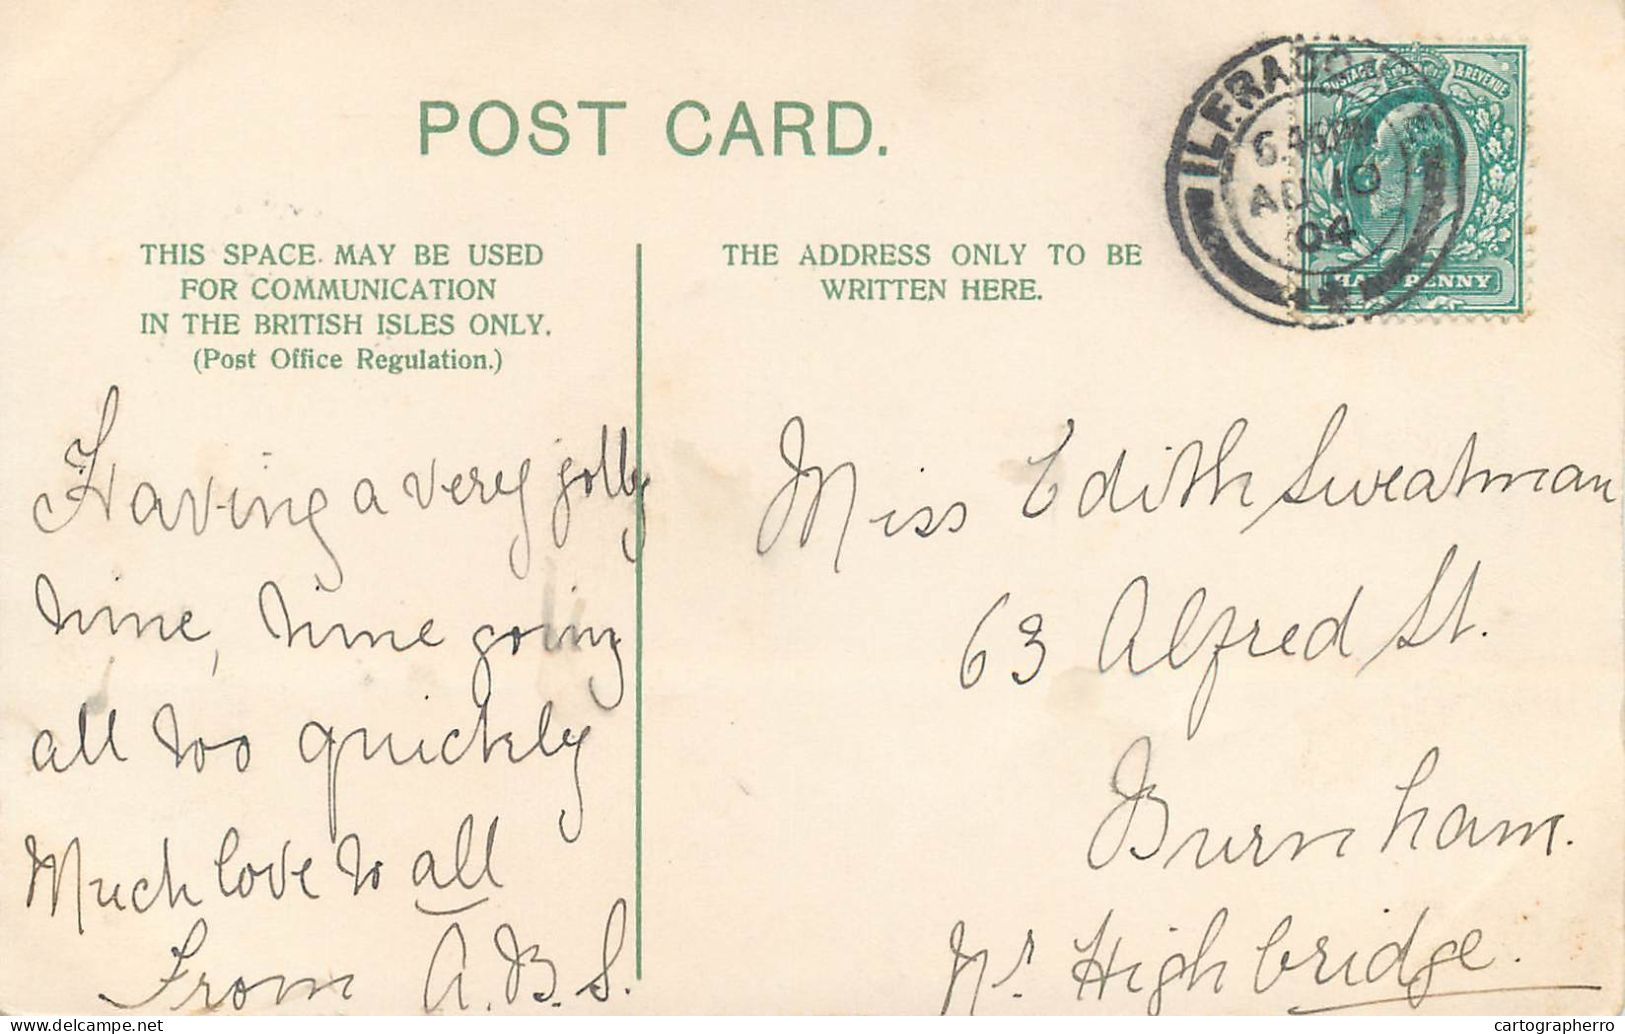 POST CARD.
ILFRACO
6.45PM
AU 10
04
POSTAGE & REVENUE
HALFPENNY
THIS SPACE MAY BE USED
FOR COMMUNICATION
IN THE BRITISH ISLES ONLY.
(Post Office Regulation.)
THE ADDRESS ONLY TO BE
WRITTEN HERE.
Having a very jolly
time, time going
all too quickly
Much love to all
From A.B.S.
Miss Edith Sweatman
63 Alfred St.
Burnham.
Nr Highbridge.
www.delcampe.net
cartographerro